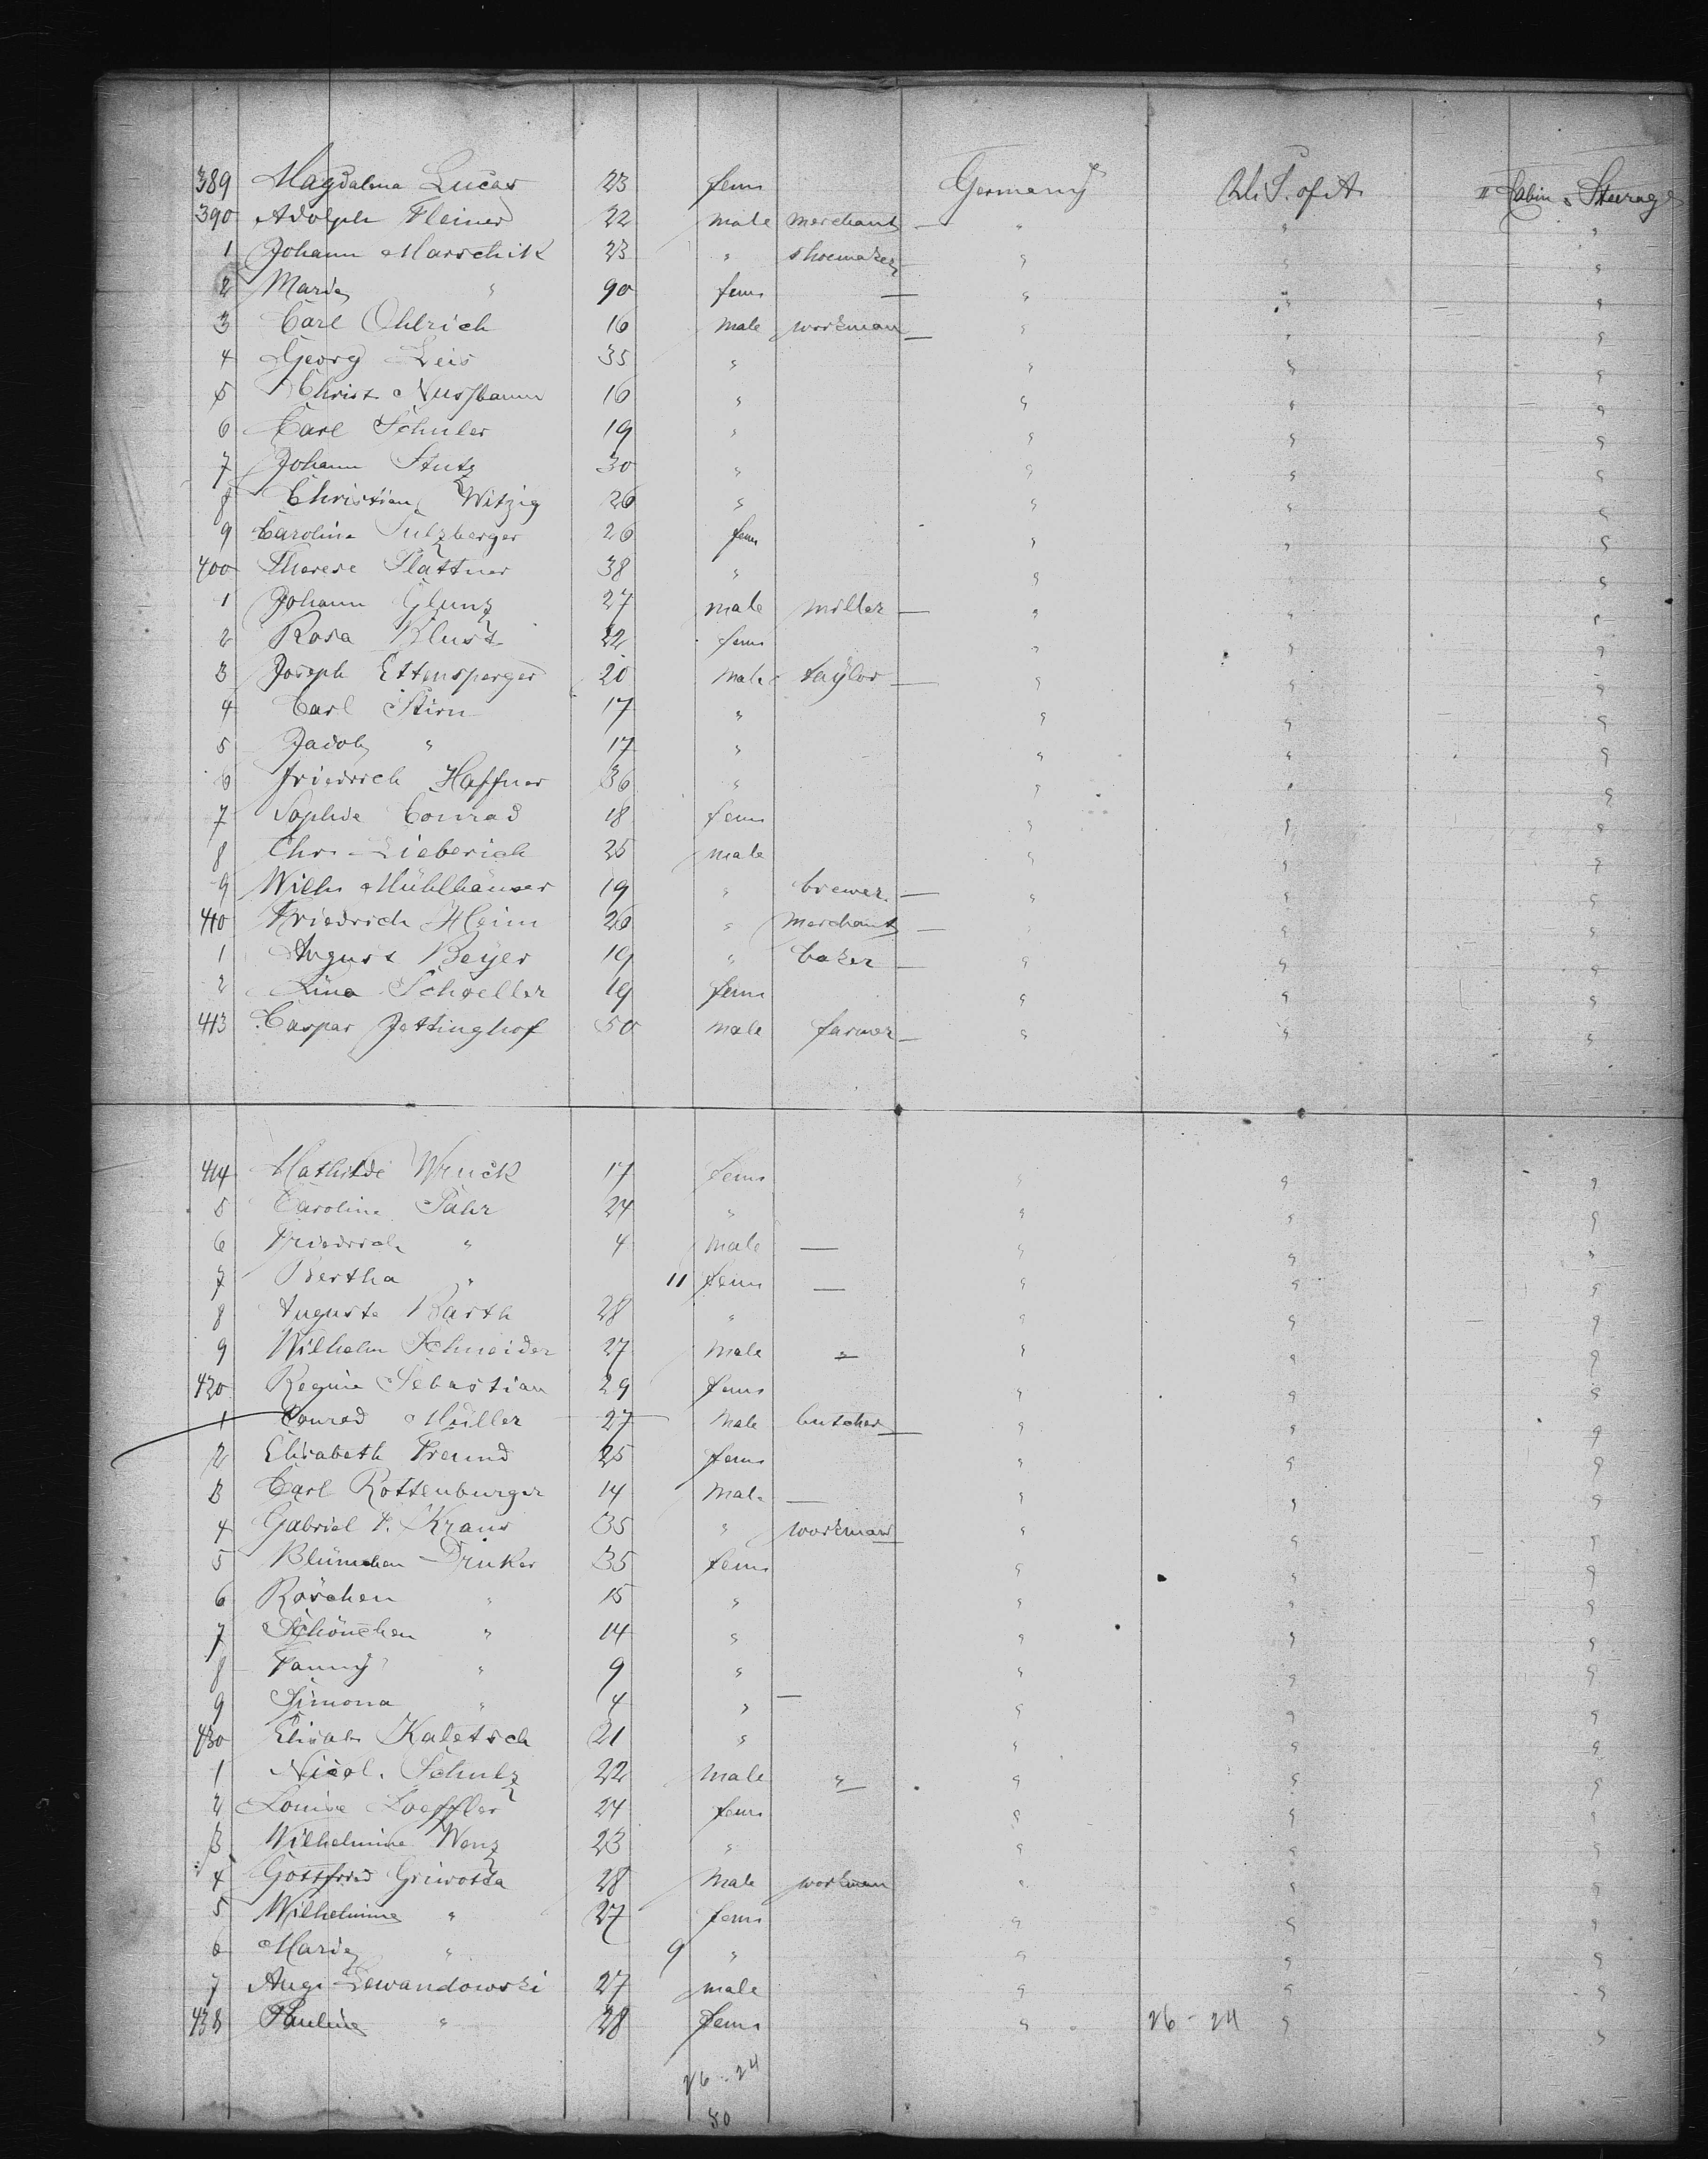 389 Magdalena Lucas 23 fem Germany U. S. of A. " Cabin " Steerage
390 Adolph Fleiner 22 male merchant — " " "
1 Johann Marschik 23 " shoemaker " " "
2 Marie " 90 fem — " " "
3 Carl Ohlrich 16 male workman — " " "
4 Georg Leis 35 " " " "
5 Christ. Nussbaum 16 " " " "
6 Carl Schuler 19 " " " "
7 Johann Stutz 30 " " " "
8 Christian Witzig 26 " " " "
9 Caroline Sulzberger 26 fem " " "
400 Therese Plattner 38 " " " "
1 Johann Glunz 27 male miller — " " "
2 Rosa Klust 22 fem " " "
3 Joseph Ettensperger 20 male taylor — " " "
4 Carl Stirn 17 " " " "
5 Jacob " 17 " " " "
6 Friedrich Haffner 36 " " " "
7 Sophie Conrad 18 fem " " "
8 Chr. Lieberich 25 male " " "
9 Wilh. Mühlhäuser 19 " brewer — " " "
410 Friedrich Heim 26 " merchant — " " "
1 August Beyer 19 " baker — " " "
2 Lina Schoeller 19 fem " " "
413 Caspar Jettinghof 50 male farmer — " " "
414 Mathilde Wruck 17 fem " " "
5 Caroline Pahr 24 " " " "
6 Friedrich " 4 male — " " "
7 Bertha " 11 fem — " " "
8 Auguste Barth 28 " " " "
9 Wilhelm Schneider 27 male " " " "
420 Regine Sebastian 29 fem " " "
1 Conrad Müller 27 male butcher — " " "
2 Elisabeth Freund 25 fem " " "
3 Carl Rottenburger 14 male — " " "
4 Gabriel F. Kraus 35 " workman " " "
5 Blümchen Druker 35 fem " " "
6 Röschen " 15 " " " "
7 Schönchen " 14 " " " "
8 Fanny " 9 " " " "
9 Simona " 4 " — " " "
430 Elisab. Kaletsch 21 " " " "
1 Nicol. Schulz 22 male " " " "
2 Louise Loeffler 24 fem " " "
3 Wilhelmine Wenz 23 " " " "
4 Gottfried Griwotta 28 male workman " " "
5 Wilhelmine " 27 fem " " "
6 Marie " 9 " " " "
7 Aug. Lewandowski 27 male " " "
438 Pauline " 28 fem " 26 - 24 " "
26 - 24
50